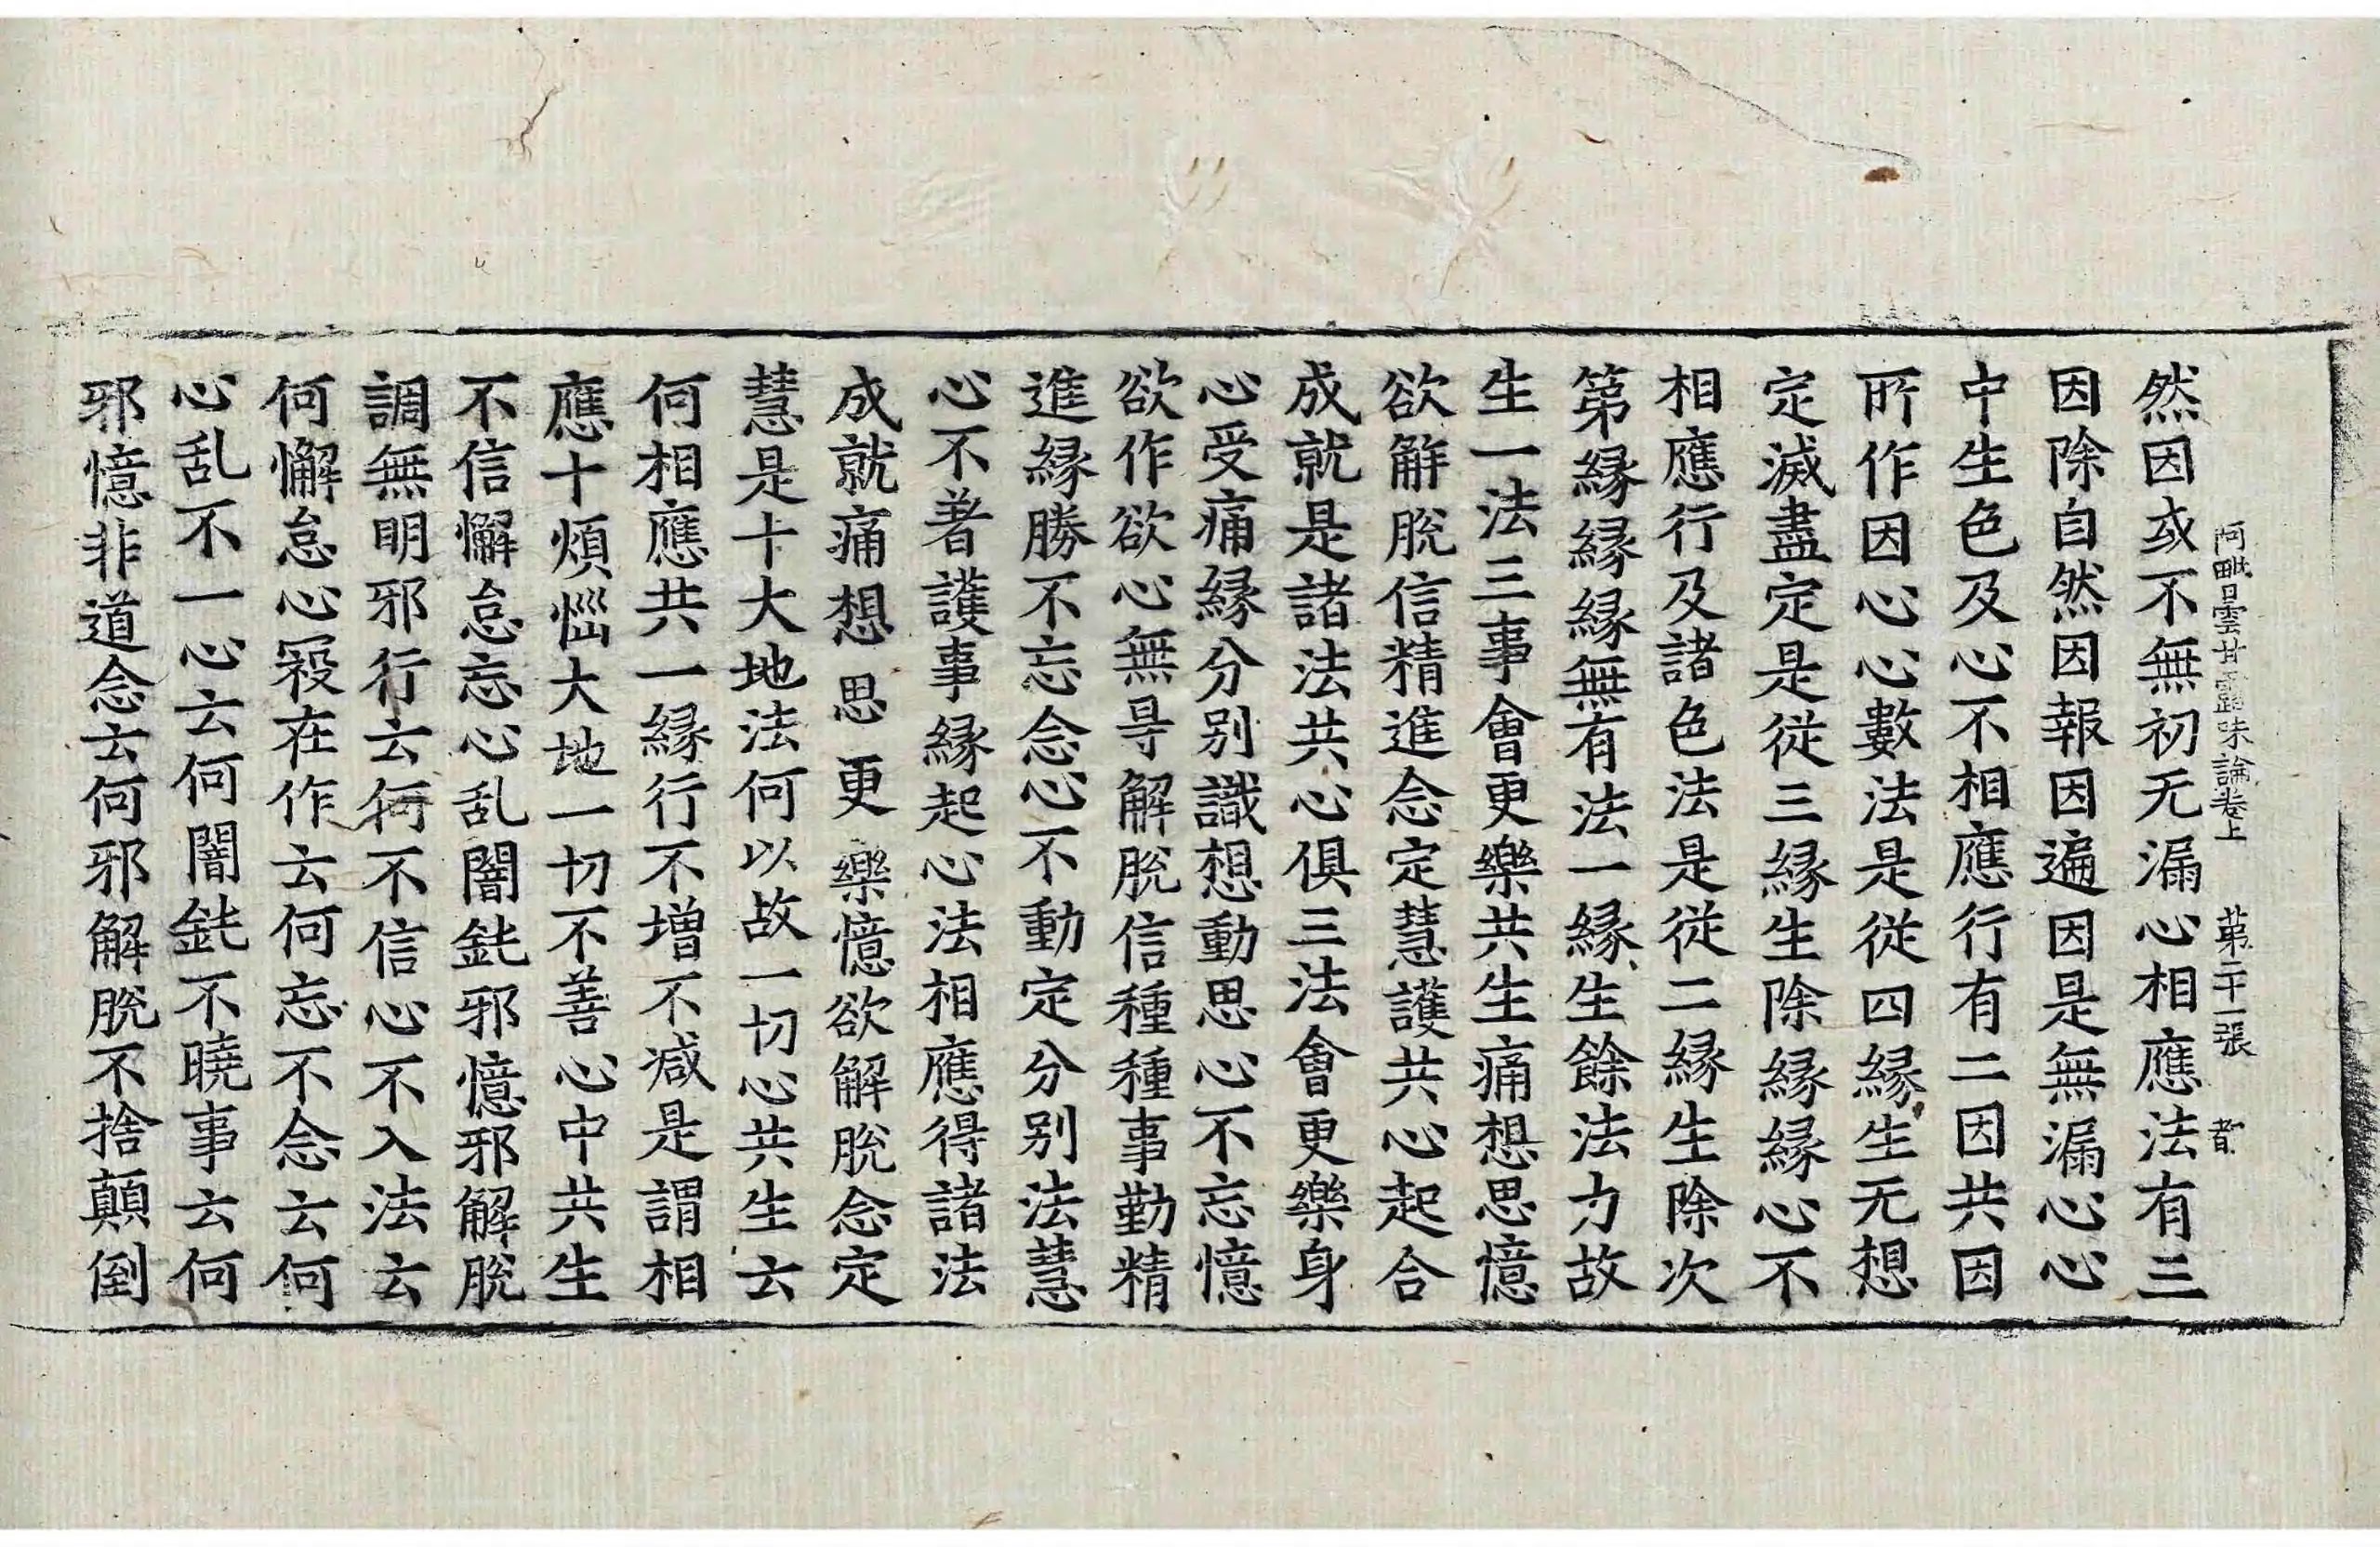 阿毗曇甘露味論卷上　第二十一張
然因或不無初无漏心相應法有三
因除自然因報因遍因是無漏心心
中生色及心不相應行有二因共因
所作因心心數法是從四緣生无想
定滅盡定是從三緣生除緣緣心不
相應行及諸色法是從二緣生除次
第緣緣緣無有法一緣生餘法力故
生一法三事會更樂共生痛想思憶
欲解脫信精進念定慧護共心起合
成就是諸法共心俱三法會更樂身
心受痛緣分別識想動思心不忘憶
欲作欲心無㝵解脫信種種事勤精
進緣勝不忘念心不動定分別法慧
心不著護事緣起心法相應得諸法
成就痛想思更樂憶欲解脫念定
慧是十大地法何以故一切心共生云
何相應共一緣行不增不減是謂相
應十煩惱大地一切不善心中共生
不信懈怠忘心乱闇鈍邪憶邪解脫
調無明邪行云何不信心不入法云
何懈怠心不在作云何忘不念云何
心乱不一心云何闇鈍不曉事云何
邪憶非道念云何邪解脫不捨顛倒